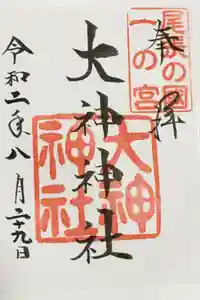 奉拝
尾張の國
一の宮
大神神社
大神
神社
令和二年八月二十九日